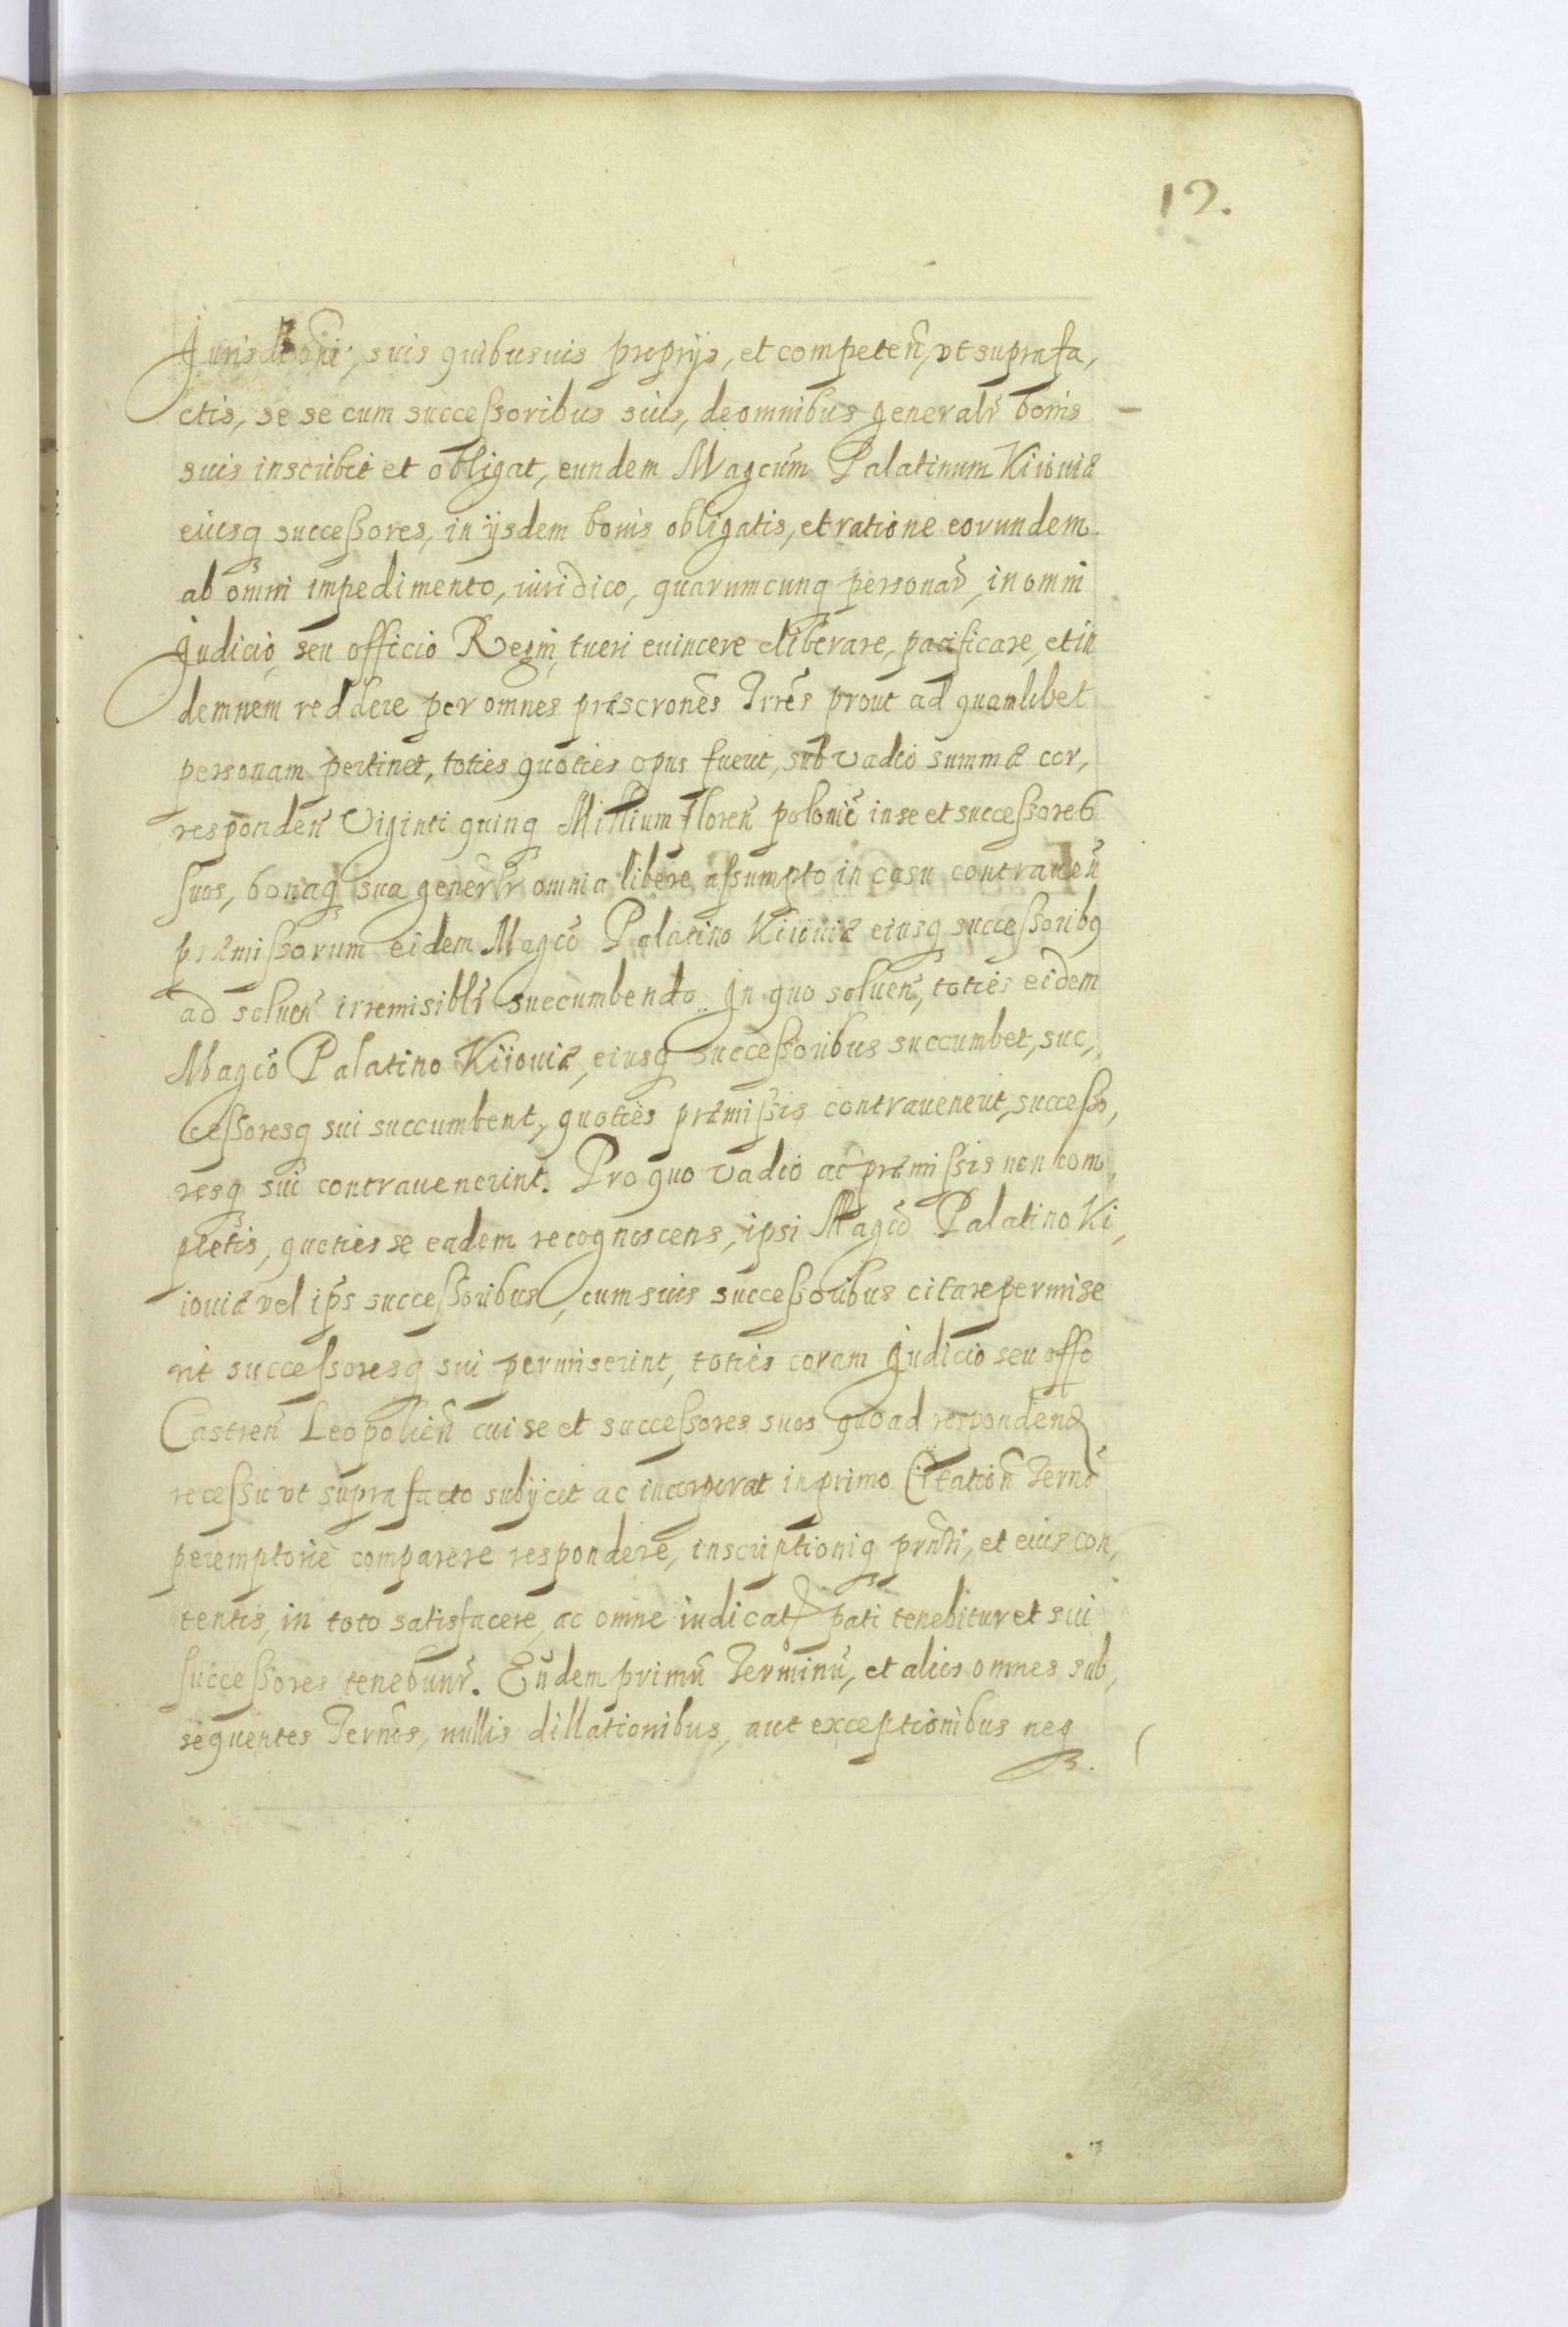 12.
Jurisdictioni, suis quibusuis proprijs, et competeñ, vt supra fa,
ctis, se se cum successoribus suis, de omnibus generalr̃ bonis
suis inscribit et obligat, eundem Magcum̃ Palatinum Kiiouiæ
eiusq successores, in ijsdem bonis obligatis, et ratione eorundem
ab omni impedimento, iuridico, quarumcunq personar̃, in omni
Judicio, seu officio Regni, tueri euincere eliberare, pacificare, et in
demnem reddere per omnes præscrones̃ Trres̃ prout ad quamlibet
personam pertinet, toties quoties opus fuerit, sub vadio summæ cor,
respondeñ Viginti quinq Millium floreñ polonic̃ in se et successores
suos, bonaq sua generlr̃ omnia libere assumpto in casu contraueñ
præmissorum eidem Magco̊ Palatino Kiiouiæ eiusq successoribq
ad soluen̊ irremisiblr̃ succumbendo. In quo solueñ, toties eidem
Magcõ Palatino Kiiouiæ, eiusq successoribus succumbet, suc,
cessoresq sui succumbent, quoties præmissis contrauenerit, successo,
resq sui contrauenerint. Pro quo vadio ac præmissis non com,
pletis, quoties se eadem recognoscens, ipsi Magcõ Palatino Ki,
iouiæ vel ips̃ successoribus, cum suis successoribus citare permise
rit successoresq sui permiserint, toties coram Judicio seu offo
Castreñ Leopolieñ cui se et successores suos quoad respondeñd
recessu vt supra facto subijcit ac incorporat in primo Citatioñ Terño
peremptorie comparere respondere, inscriptioniq prñti, et eius con,
tentis, in toto satisfacere, ac omne iudicat pati tenebitur et sui
successores tenebunr̃. Eũdem primũ Terminũ, et alios omnes sub,
sequentes Terños, nullis dillationibus, aut exceptionibus neq